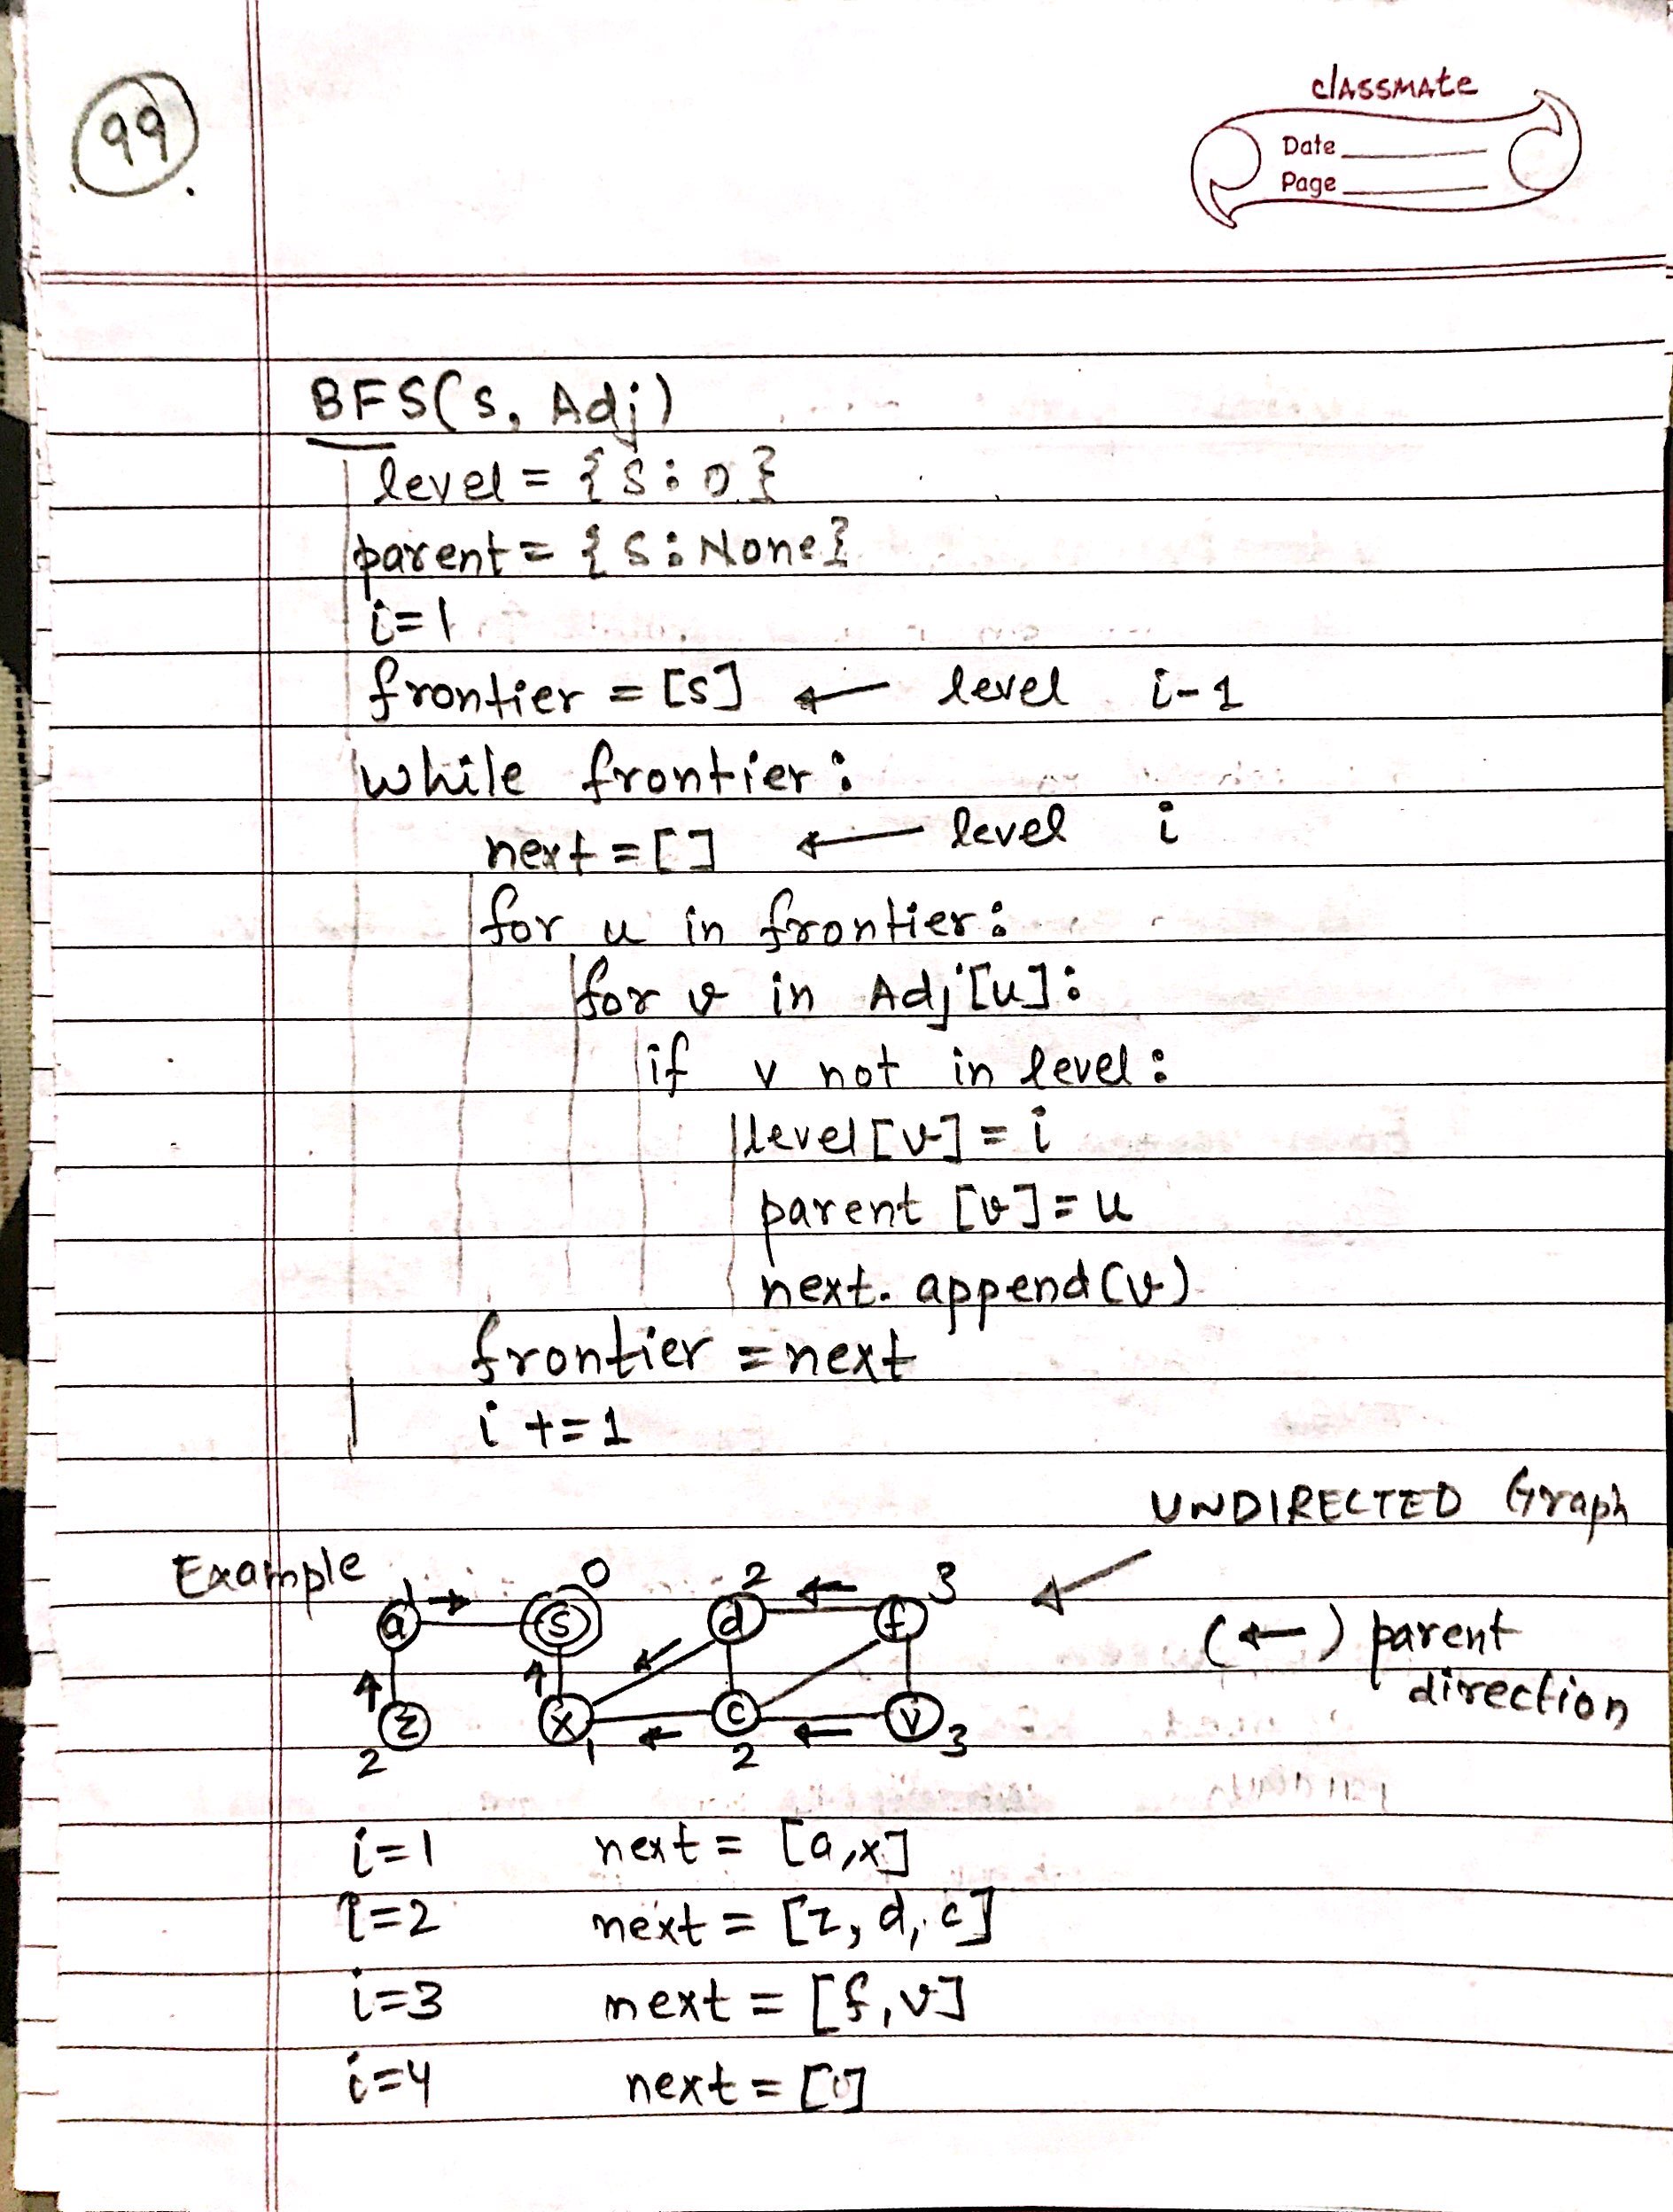 99
classmate
Date
Page
BFS(s, Adj)
level = {s:0}
parent = {s:None}
i=1
frontier = [s] ← level i-1
while frontier:
next = [] ← level i
for u in frontier:
for v in Adj[u]:
if v not in level:
level[v] = i
parent [v] = u
next.append(v)
frontier = next
i += 1
UNDIRECTED Graph
Example
1 → 0 2 ← 3
a s d f
(←) parent
direction
z x c v
2 1 ← 2 ← 3
i=1 next = [a,x]
i=2 next = [z, d, c]
i=3 next = [f,v]
i=4 next = []